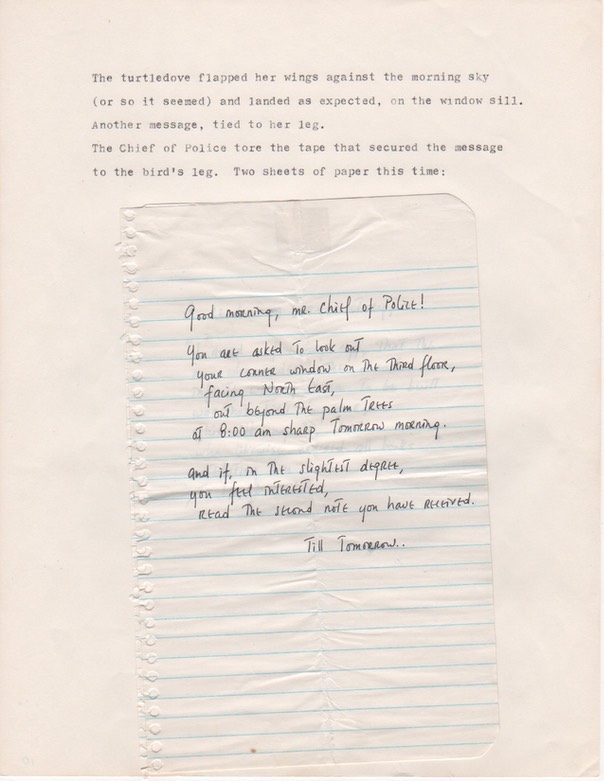 The turtledove flapped her wings against the morning sky
(or so it seemed) and landed as expected, on the window sill.
Another message, tied to her leg.
The Chief of Police tore the tape that secured the message
to the bird's leg. Two sheets of paper this time:
Good morning, mr. Chief of Police!
you are asked to look out
your corner window on the third floor,
facing North East,
out beyond the palm trees
at 8:00 am sharp tomorrow morning.
and if, in the slightest degree,
you feel interested,
read the second note you have received.
Till tomorrow..